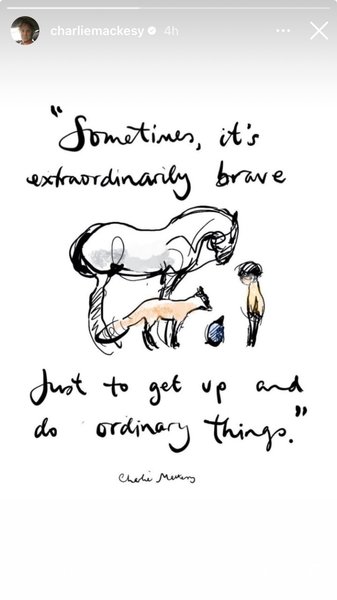 charliemackesy 4h
"Sometimes, it's
extraordinarily brave
Just to get up and
do ordinary things."
Charlie Mackesy